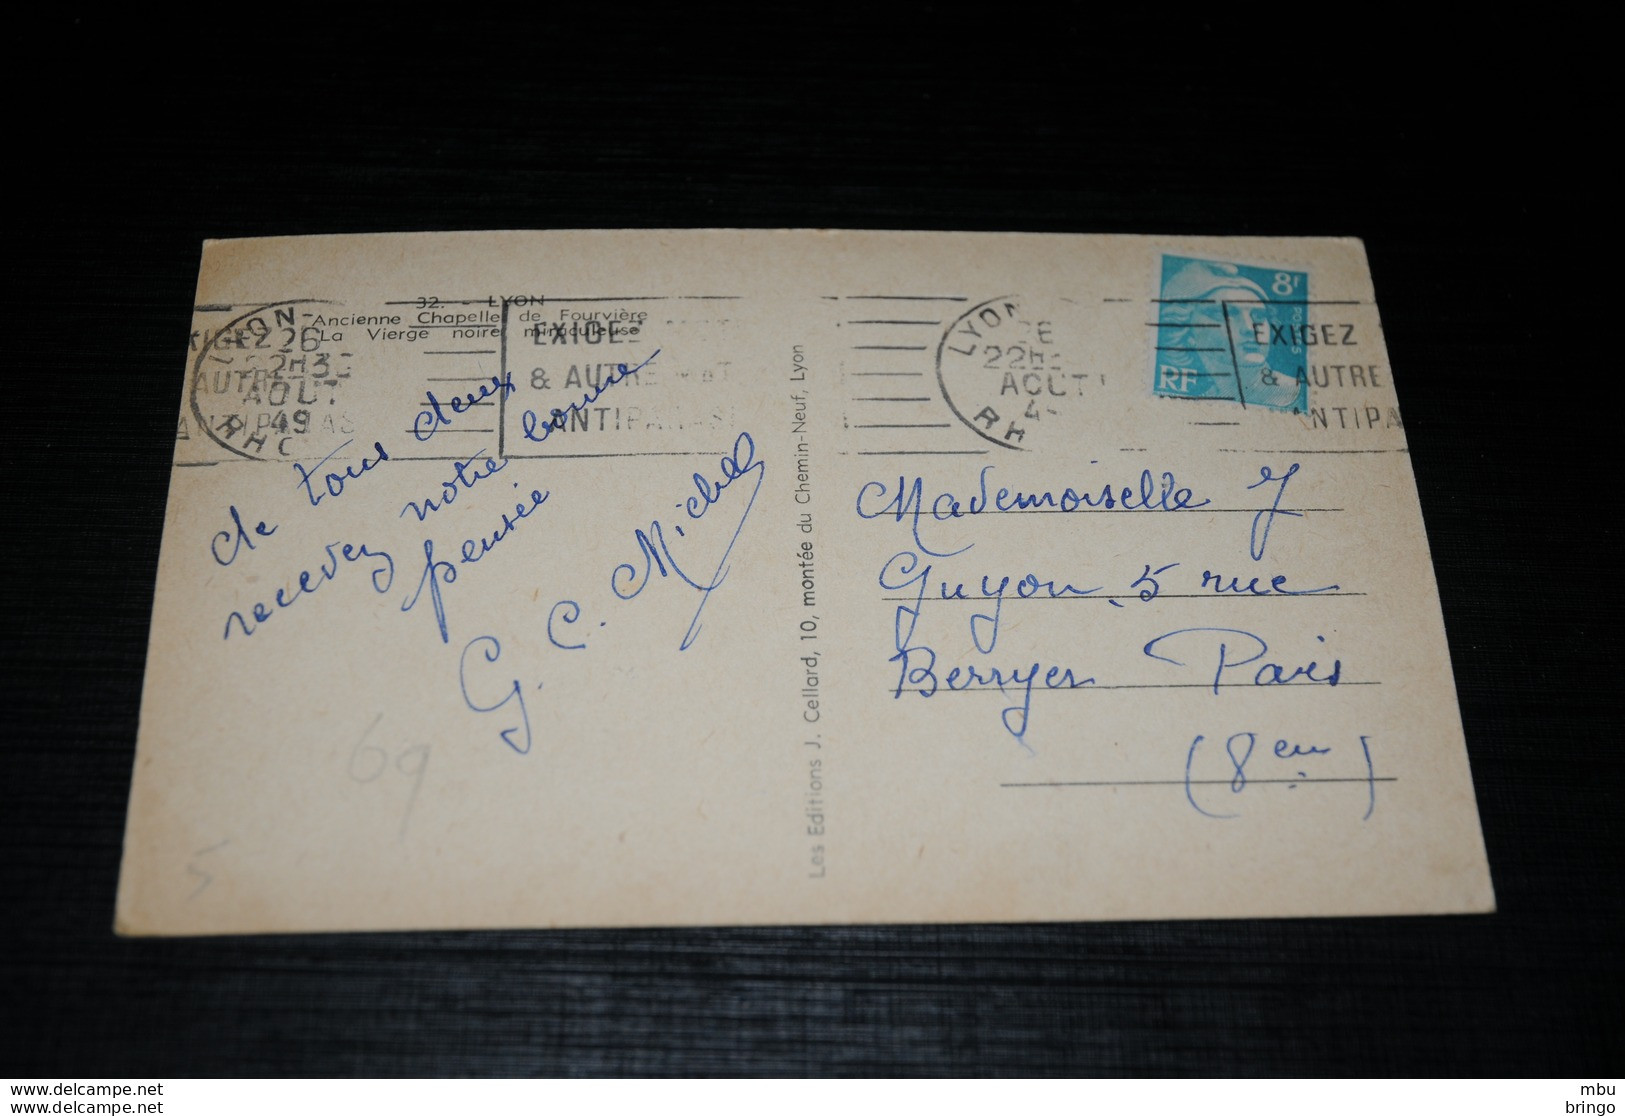 32. - LYON
Ancienne Chapelle de Fourvière
La Vierge noire miraculeuse
LYON
26
22H30
AOUT
49
RHO
EXIGEZ
& AUTRE
ANTIPARASI
LYON
22H
AOUT
4
RH
EXIGEZ
& AUTRE
ANTIPA
8F
RF
de tous deux
recevez notre bonne
pensée
G. C. Michel
Les Editions J. Cellard, 10, montée du Chemin-Neuf, Lyon
Mademoiselle Y
Guyon, 5 rue
Berryer Paris
(8em)
69
5
www.delcampe.net
mbu
www.delcampe.net
bringo